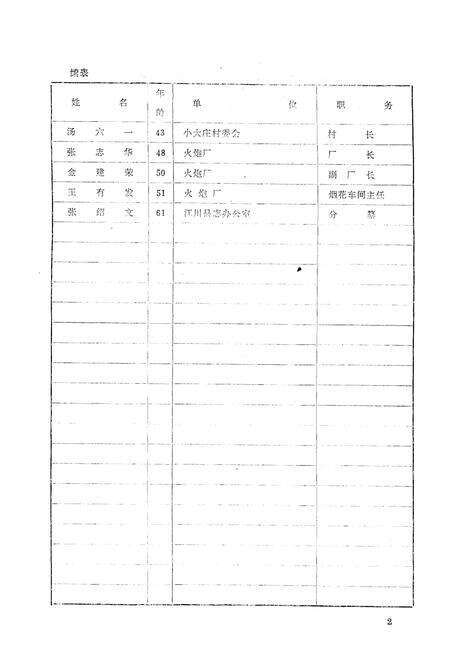 续表
姓 名 年龄 单 位 职 务
汤 六 一 43 小大庄村委会 村 长
张 志 华 48 火炮厂 厂 长
金 建 荣 50 火炮厂 副 厂 长
王 有 发 51 火 炮 厂 烟花车间主任
张 绍 文 61 江川县志办公室 分 纂
2